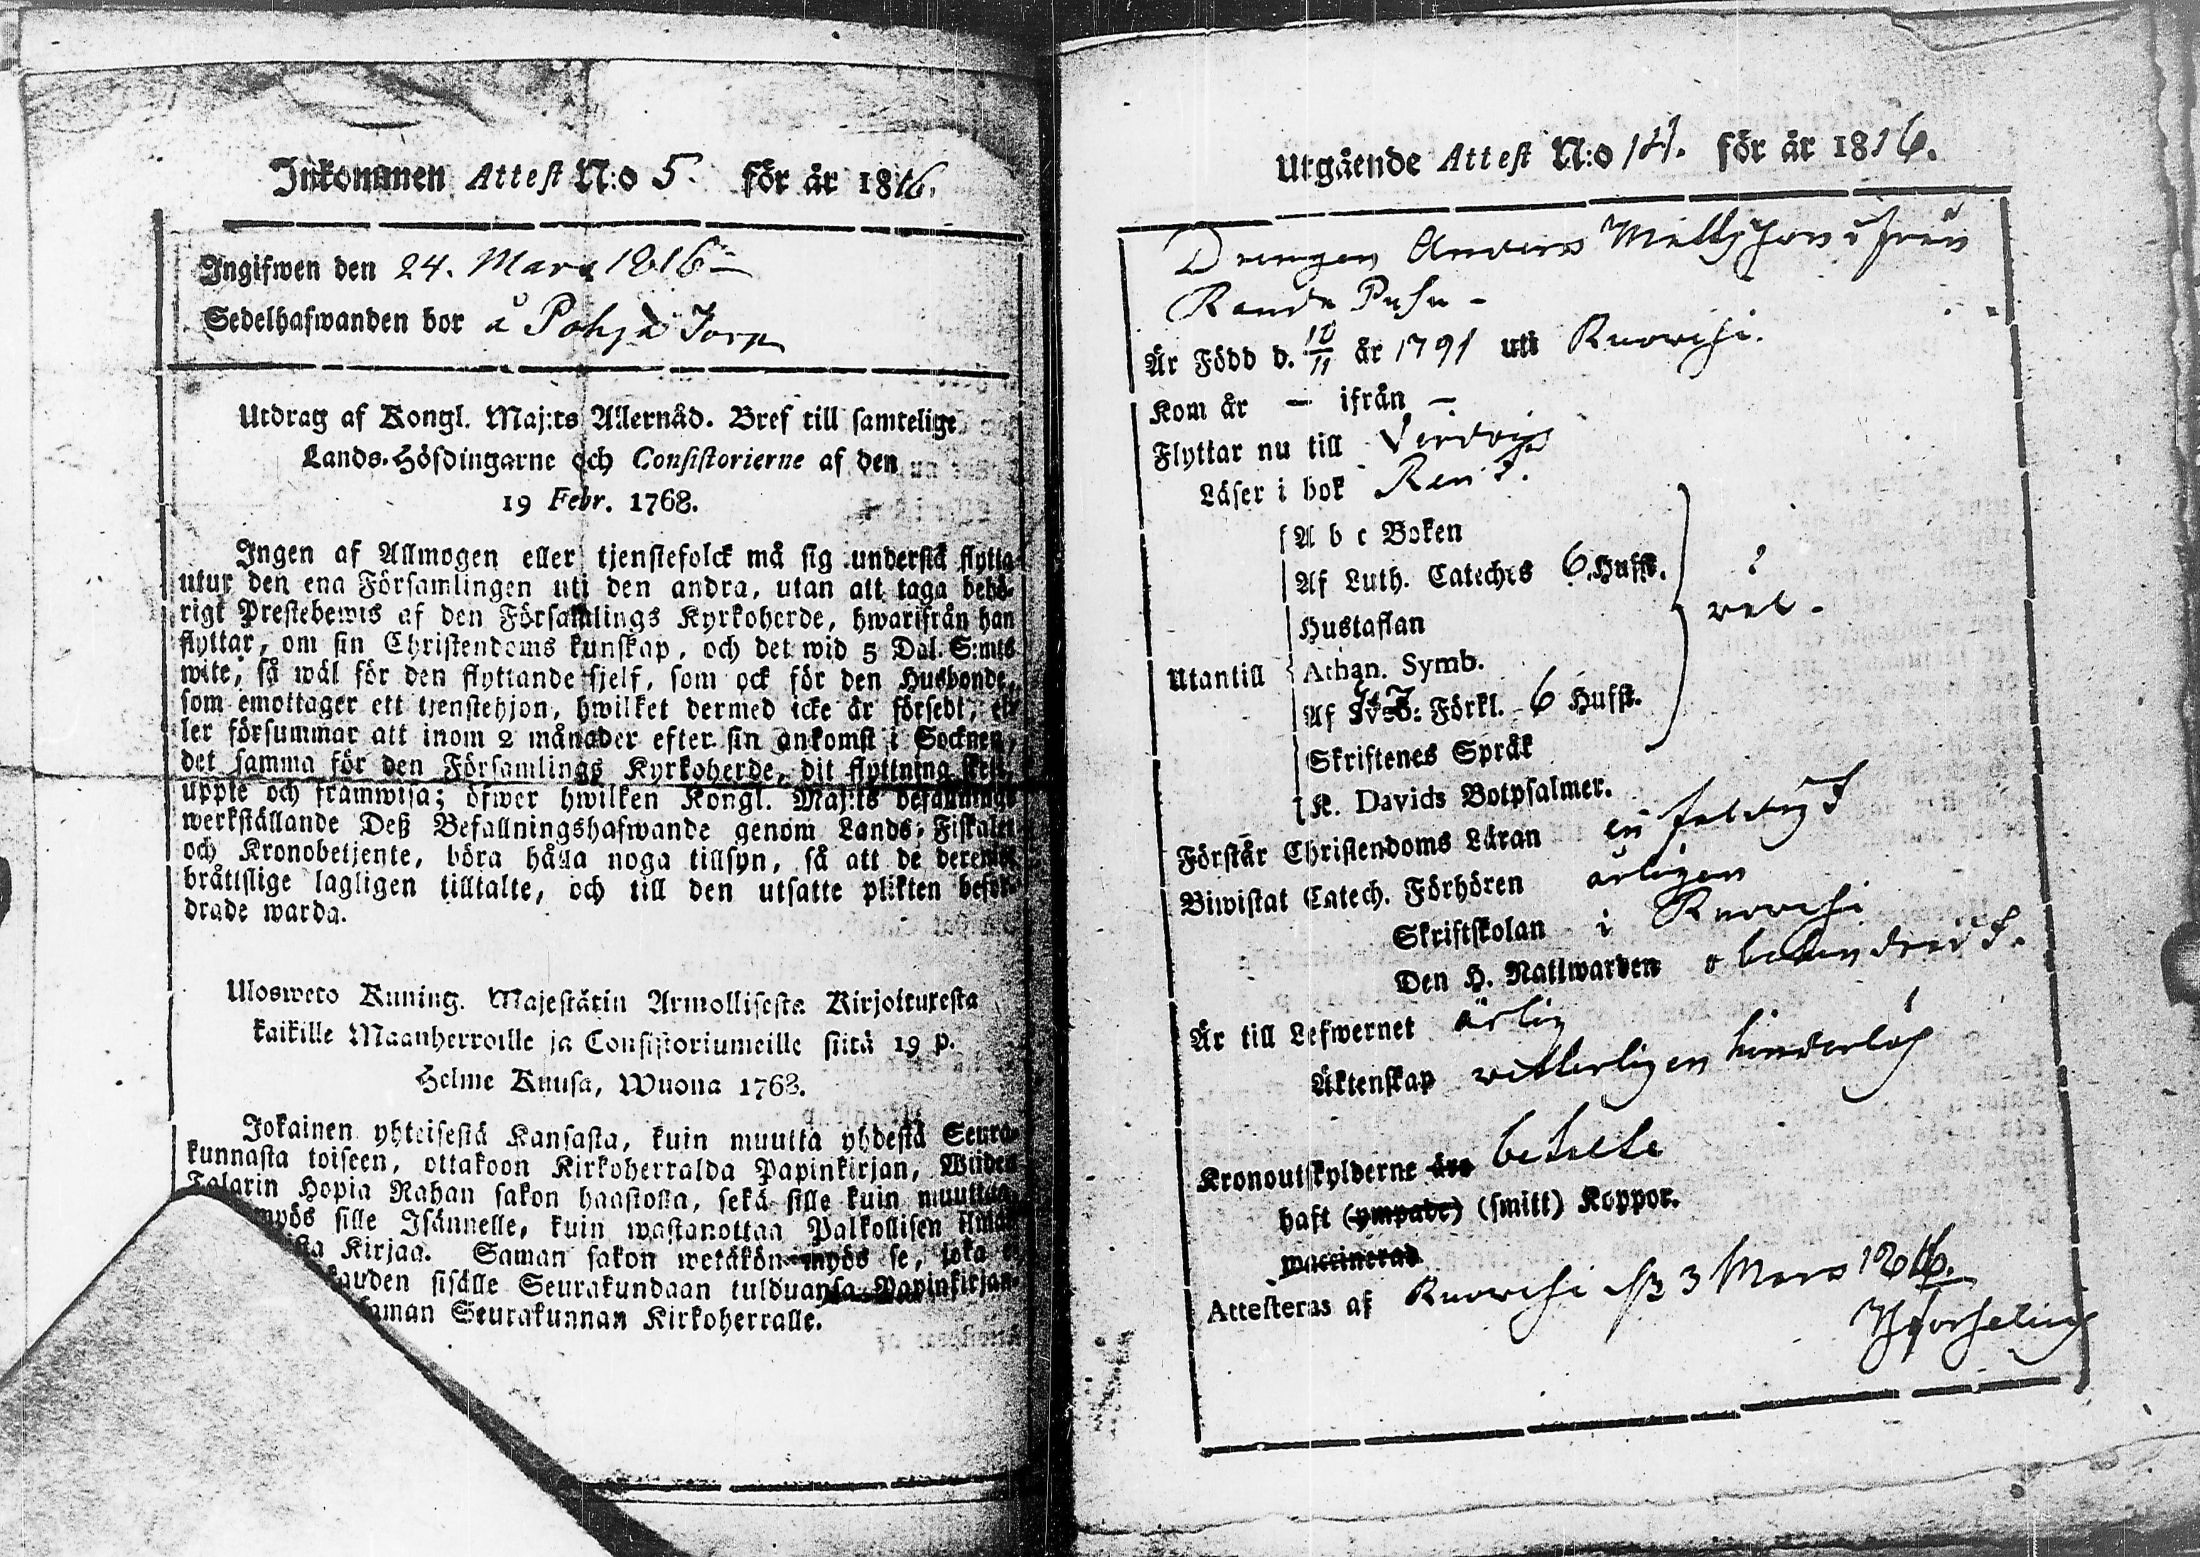 Inkommen Attest N:o 5. för år 1816.
Ingifwen den 24. Mars 1816
Sedelhafwanden bor å Pohja Torp
Utdrag af Kongl. Maj:ts Allernåd. Bref till samtelige
Lands-Höfdingarne och Consistorierne af den
19 Febr. 1768.
Ingen af Allmogen eller tjenstefolck må sig understå flytta
utur den ena Församlingen uti den andra, utan att taga behö-
rigt Prestebewis af den Församlings Kyrkoherde, hwarifrån han
flyttar, om sin Christendoms kunskap, och det wid 5 Dal. S:mts
wite, så wäl för den flyttande sjelf, som ock för den Husbonde,
som emottager ett tjenstehjon, hwilket dermed icke är försedt, el-
ler försummar att inom 2 månader efter sin ankomst i Socknen,
det samma för den Församlings Kyrkoherde, dit flyttning sker,
uppte och framwisa; öfwer hwilken Kongl. Maj:ts befallnings
werkställande Deß Befallningshafwande genom Lands-Fiskaler
och Kronobetjente, böra hålla noga tillsyn, så att de deremot
bråttslige lagligen tilltalte, och till den utsatte plikten befor-
drade warda.
Ulosweto Kuning. Majestätin Armollisesta Kirjoituxesta
kaikille Maanherroille ja Consistoriumeille siitä 19 p.
Helme Kuusa, Wuona 1768.
Jokainen yhteisestä Kansasta, kuin muutta yhdestä Seura-
kunnasta toiseen, ottakoon Kirkoherralda Papinkirjan, Wiiden
Talarin Hopia Rahan sakon haastolla, sekä sille kuin muuttaa,
myös sille Isännelle, kuin wastanottaa Palkollisen ilman
Kirjaa. Saman sakon wetäkön myös se, joka ei
kauden sisälle Seurakundaan tulduansa Papinkirjan-
saman Seurakunnan Kirkoherralle.
Utgående Attest N:o 14. för år 1816.
Drengen Anders Mattsson ifrån
Randa Pusu -
Är Född d. 10/11 år 1791 uti Ruovesi.
Kom år — ifrån —
Flyttar nu till Virdois
Läser i bok Rent.
A b c Boken
Af Luth. Cateches 6 Hufst.
Hustaflan
Utantill Athan. Symb.
Af Sveb: Förkl. 6 Hufst.
Skriftenes Språk
K. Davids Botpsalmer.
wäl.
Förstår Christendoms Läran enfaldigt
Biwistat Catech. Förhören årligen
Skriftskolan i Ruovesi
Den H. Nattwarden obehindradt.
Är till Lefwernet ärlig
Äktenskap vetterligen hinderlös
Kronoutskylderne äro betalte
haft (ympade) (smitt) Koppor.
waccinerad
Attesteras af Ruovesi d. 3 Mars 1816.